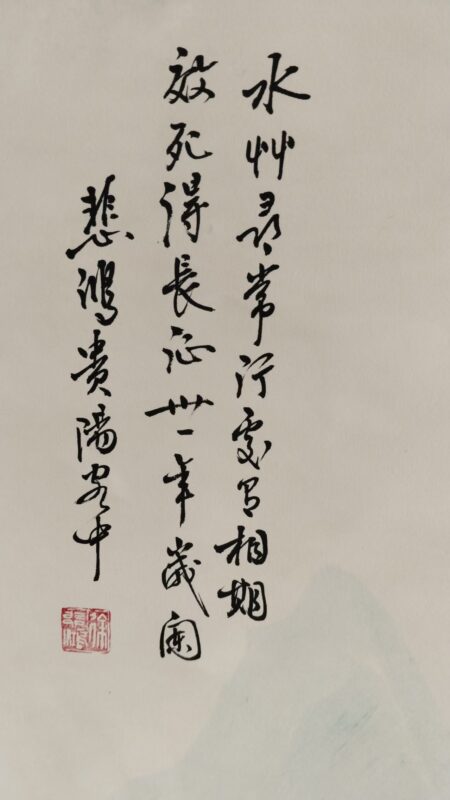 水艸尋常行處有相期
效死得長征卅一年歲闌
悲鴻貴陽客中
徐悲鴻